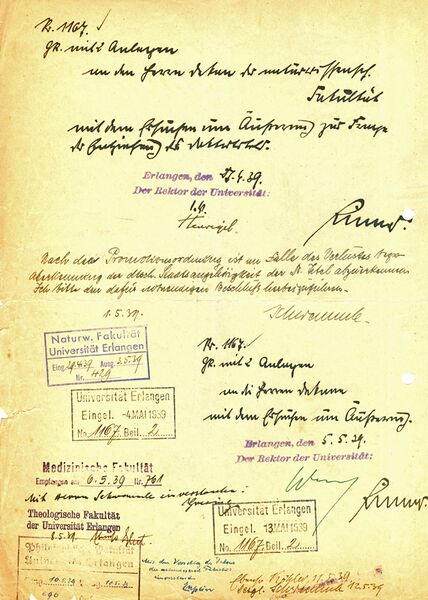 Nr. 1167.
gR. mit 2 Anlagen
an den Herrn Dekan der naturwissensch.
Fakultät
mit dem Ersuchen um Äußerung zur Frage
der Entziehung des Doktortitels.
Erlangen, den 27.4.39.
Der Rektor der Universität:
I.V.
Nach der Promotionsordnung ist im Falle des Verlustes bezw.
Aberkennung der dtsch. Staatsangehörigkeit der Dr. Titel abzuerkennen
Ich bitte den dafür notwendigen Beschluß herbeizuführen.
1.5.39.
Naturw. Fakultät
Universität Erlangen
Eing. 29.4.39 Ausg. 2.5.39
Nr. 429
Universität Erlangen
Eingel. -4. MAI 1939
No. 1167. Beil. 2
Nr. 1167.
gR. mit 2 Anlagen
an die Herren Dekane
mit dem Ersuchen um Äußerung.
Erlangen, den 5.5.39.
Der Rektor der Universität:
Medizinische Fakultät
Empfangen am 6.5.39 Nr. 761
Mit Herrn Schwemmle einverstanden:
Theologische Fakultät
der Universität Erlangen
8.5.39.
Universität Erlangen
Eingel. 13. MAI 1939
No. 1167. Beil. 2
Philosophische Fakultät
Universität Erlangen
10.5.39
Mit dem Vorschlag des Dekans
der naturwissensch. Fakultät
einverstanden
11.5.39
Schwemmle 12.5.39